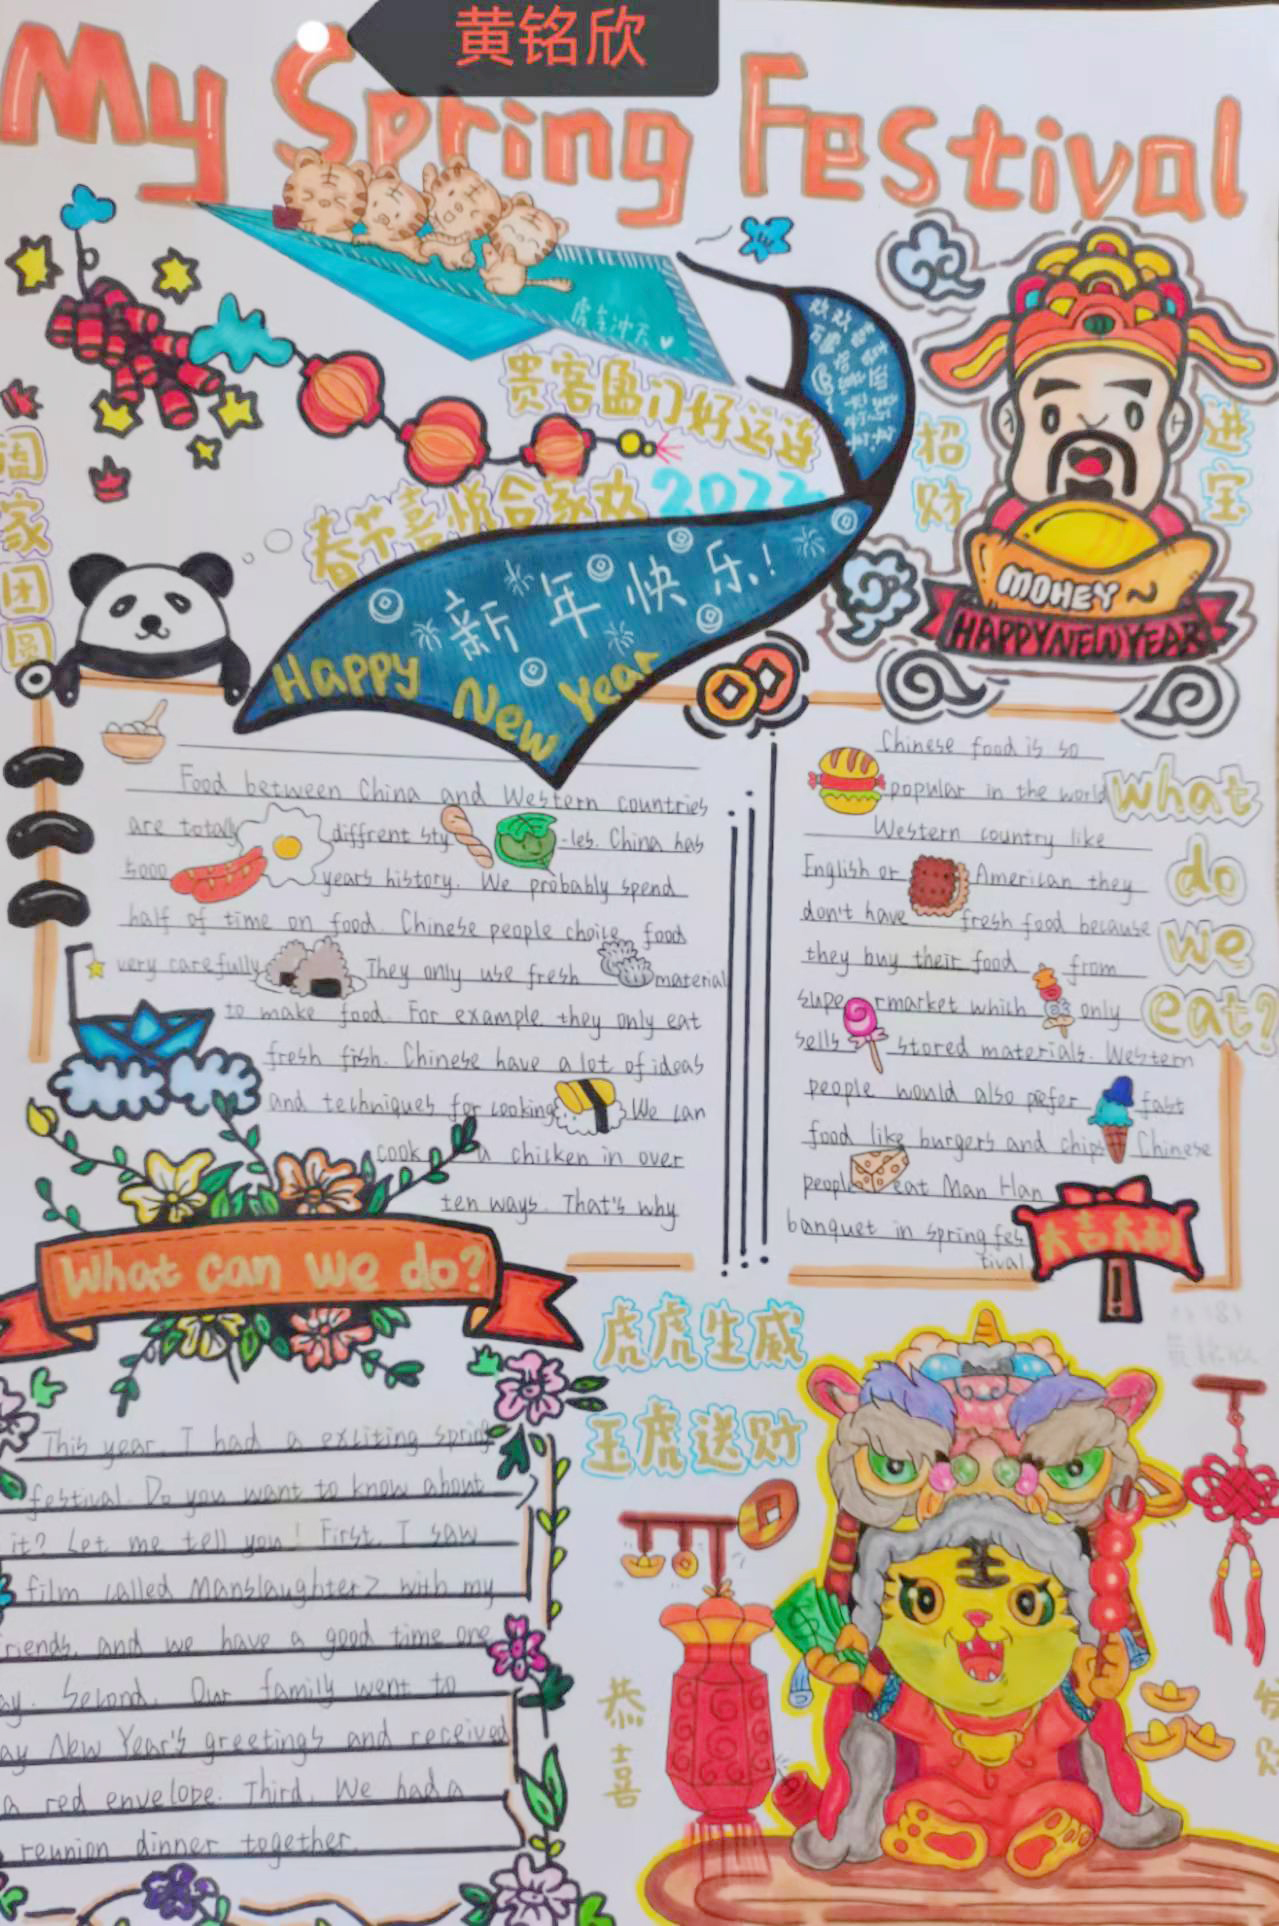 黄铭欣
My Spring Festival
虎年冲天
贵客盈门好运连
2022
春节喜悦合家欢
阖家团圆
新年快乐!
Happy New Year
招财
进宝
MOHEY~
HAPPY NEW YEAR
Food between China and Western countries
are totally diffrent sty-les. China has
5000 years history. We probably spend
half of time on food. Chinese people choice food
very carefully They only use fresh material
to make food. For example they only eat
fresh fish. Chinese have a lot of ideas
and techniques for cooking We can
cook a chicken in over
ten ways. That's why
Chinese food is so
popular in the world
Western country like
English or American they
don't have fresh food because
they buy their food from
supermarket which only
sells stored materials. Western
people would also prefer fast
food like burgers and chips Chinese
people eat Man Han
banquet in spring fes
tival
What do we eat?
大吉大利
What can we do?
This year, I had a exciting spring
festival. Do you want to know about
it? Let me tell you! First, I saw
film called Manslaughter2 with my
riends, and we have a good time one
ay. Second, Our family went to
ay New Year's greetings and received
a red envelope. Third, We had a
reunion dinner together.
虎虎生威
玉虎送财
恭喜